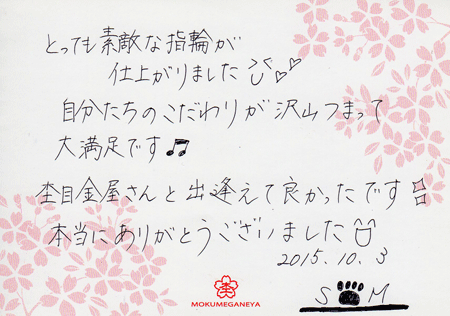 とっても素敵な指輪が
仕上がりました
自分たちのこだわりが沢山つまって
大満足です♫
杢目金屋さんと出逢えて良かったです
本当にありがとうございました
2015.10.3
S M
杢
MOKUMEGANEYA